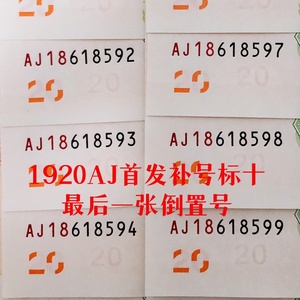 AJ18618592
AJ18618597
20
20
AJ18618593
AJ18618598
20
1920AJ首发补号标十
最后一张倒置号
AJ18618594
AJ18618599
20
20